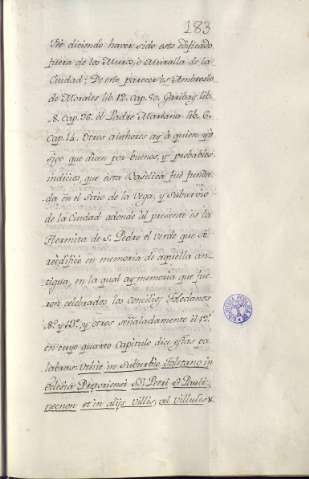 183
diciendo haver sido esto edificado
fuera de los Muros, o Muralla de la
Ciudad; De este parecer es Ambrosio
de Morales lib. 12. cap. Garibay lib.
8. cap. el Padre Mariana lib. 6.
cap. 14. Otros authores ay a quien
sigo que dicen por buenos, y probables
indicios, que esta Basilica fue funda
da en el sitio de la Vega, y Suburvio
de la Ciudad adonde al presente es la
Hermita de S. Pedro el Verde que se
reedificó en memoria de aquella an
tigua, en la qual ay memoria que fue
ron celebrados los concilios Toledanos
8.º y y otros señaladamente el
en cuyo quarto Capitulo dice estas pa
labras: in Suburbio Toletano in
Petri et Pauli,
et in alijs Villis, vel Villulis